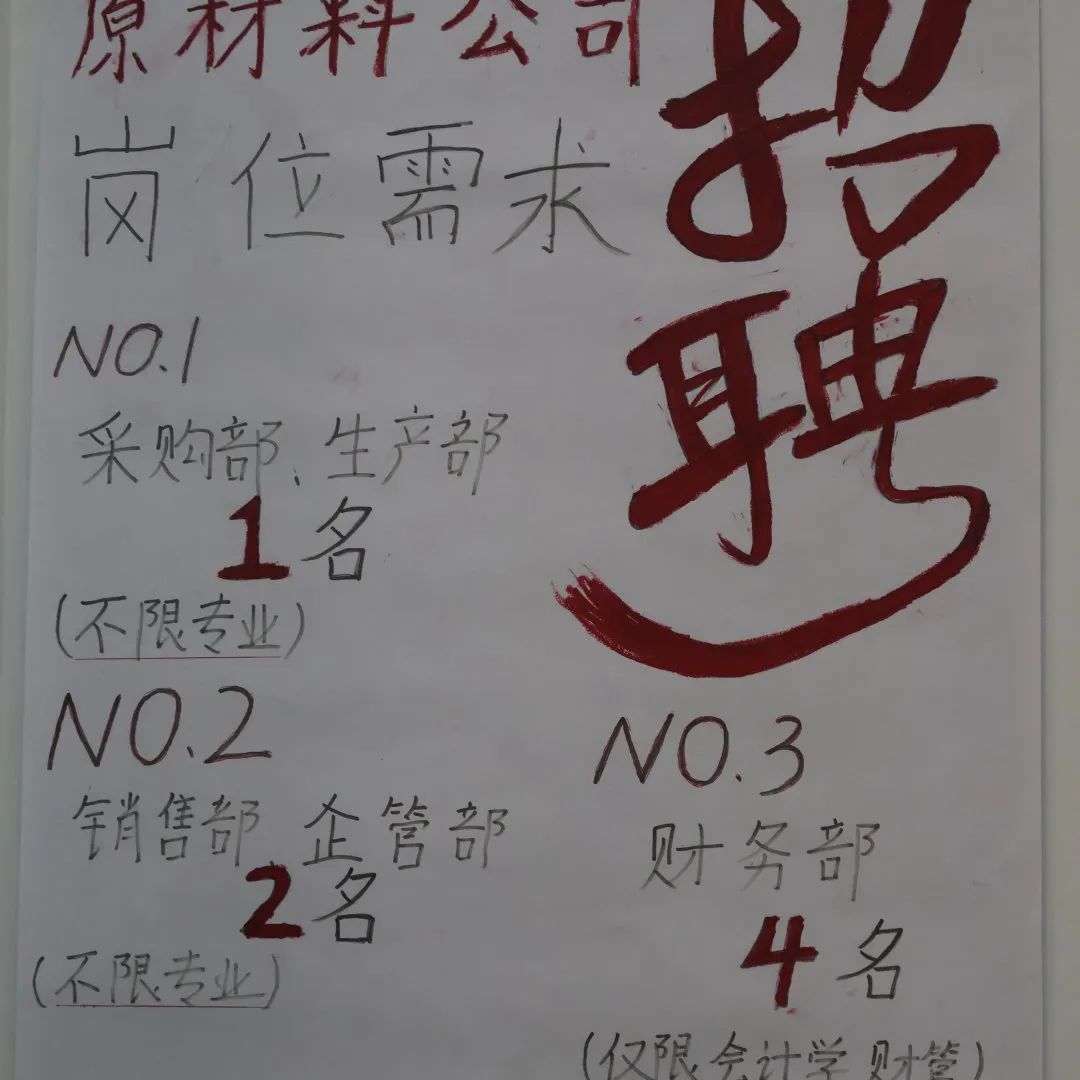 原材料公司
招聘
岗位需求
NO.1
采购部、生产部
1名
(不限专业)
NO.2
销售部 企管部
2名
(不限专业)
NO.3
财务部
4名
(仅限会计学 财管)